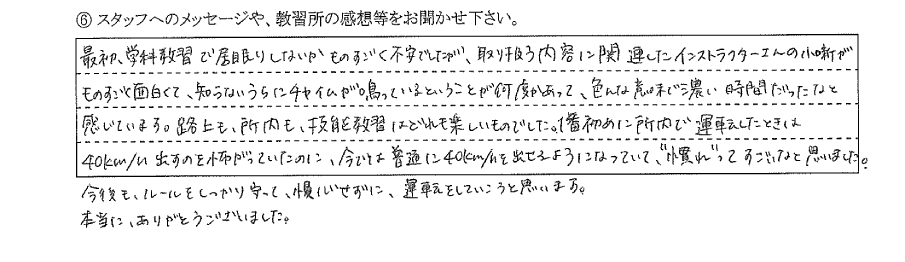 ⑥ スタッフへのメッセージや、教習所の感想等をお聞かせ下さい。
最初、学科教習で居眠りしないかものすごく不安でしたが、取り扱う内容に関連したインストラクターさんの小噺が
ものすごく面白くて、知らないうちにチャイムが鳴っているということが何度かあって、色んな意味で濃い時間だったなと
感じています。路上も、所内も、技能教習はどれも楽しいものでした。1番初めに所内で運転したときは
40km/h出すのを怖がっていたのに、今では普通に40km/hを出せるようになっていて、“慣れ”ってすごいなと思いました。
今後も、ルールをしっかり守って、慢心せずに、運転をしていこうと思います。
本当に、ありがとうございました。